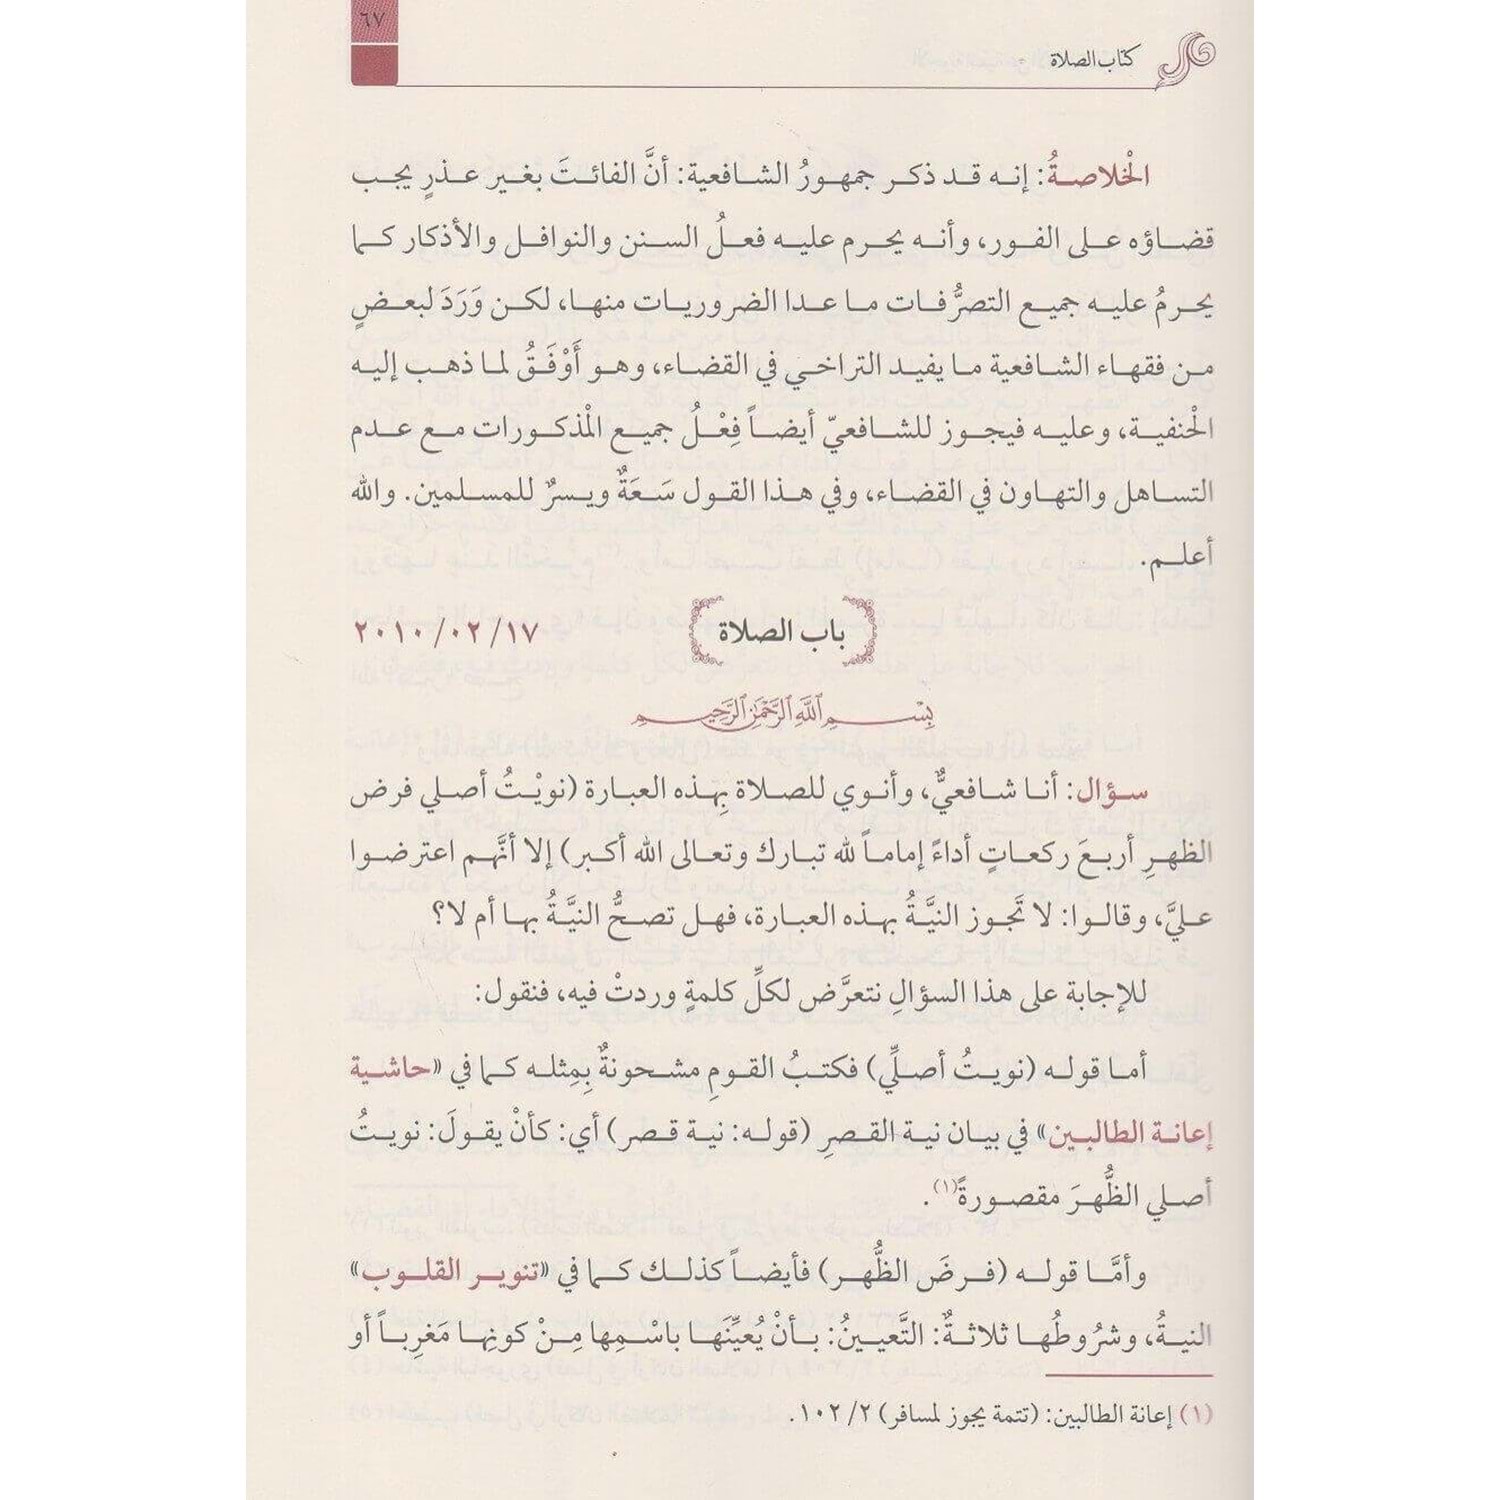 ٦٧
كتاب الصلاة
الْخلاصةُ: إنه قد ذكر جمهورُ الشافعية: أنَّ الفائتَ بغير عذرٍ يجب
قضاؤه على الفور، وأنه يحرم عليه فعلُ السنن والنوافل والأذكار كما
يحرمُ عليه جميع التصرُّفات ما عدا الضروريات منها، لكن وَرَدَ لبعضٍ
من فقهاء الشافعية ما يفيد التراخي في القضاء، وهو أَوْفَقُ لما ذهب إليه
الْحنفية، وعليه فيجوز للشافعيّ أيضاً فِعْلُ جميع الْمذكورات مع عدم
التساهل والتهاون في القضاء، وفي هذا القول سَعَةٌ ويسرٌ للمسلمين. والله
أعلم.
باب الصلاة ٢٠١٠/٠٢/١٧
بِسْمِ اللَّهِ الرَّحْمَٰنِ الرَّحِيمِ
سؤال: أنا شافعيٌّ، وأنوي للصلاة بِهذه العبارة (نويْتُ أصلي فرض
الظهرِ أربعَ ركعاتٍ أداءً إماماً لله تبارك وتعالى الله أكبر) إلا أنَّهم اعترضوا
عليَّ، وقالوا: لا تَجوز النيَّةُ بهذه العبارة، فهل تصحُّ النيَّةُ بها أم لا؟
للإجابة على هذا السؤالِ نتعرَّض لكلِّ كلمةٍ وردتْ فيه، فنقول:
أما قوله (نويتُ أصلِّي) فكتبُ القومِ مشحونةٌ بِمِثله كما في «حاشية
إعانة الطالبين» في بيان نية القصرِ (قوله: نية قصر) أي: كأنْ يقولَ: نويتُ
أصلي الظُّهرَ مقصورةً(١).
وأمَّا قوله (فرضَ الظُّهر) فأيضاً كذلك كما في «تنوير القلوب»
النيةُ، وشرُوطُها ثلاثةٌ: التَّعيينُ: بأنْ يُعيِّنَها باسْمِها مِنْ كونِها مَغرِباً أو
(١) إعانة الطالبين: (تتمة يجوز لمسافر) ٢/ ١٠٢.